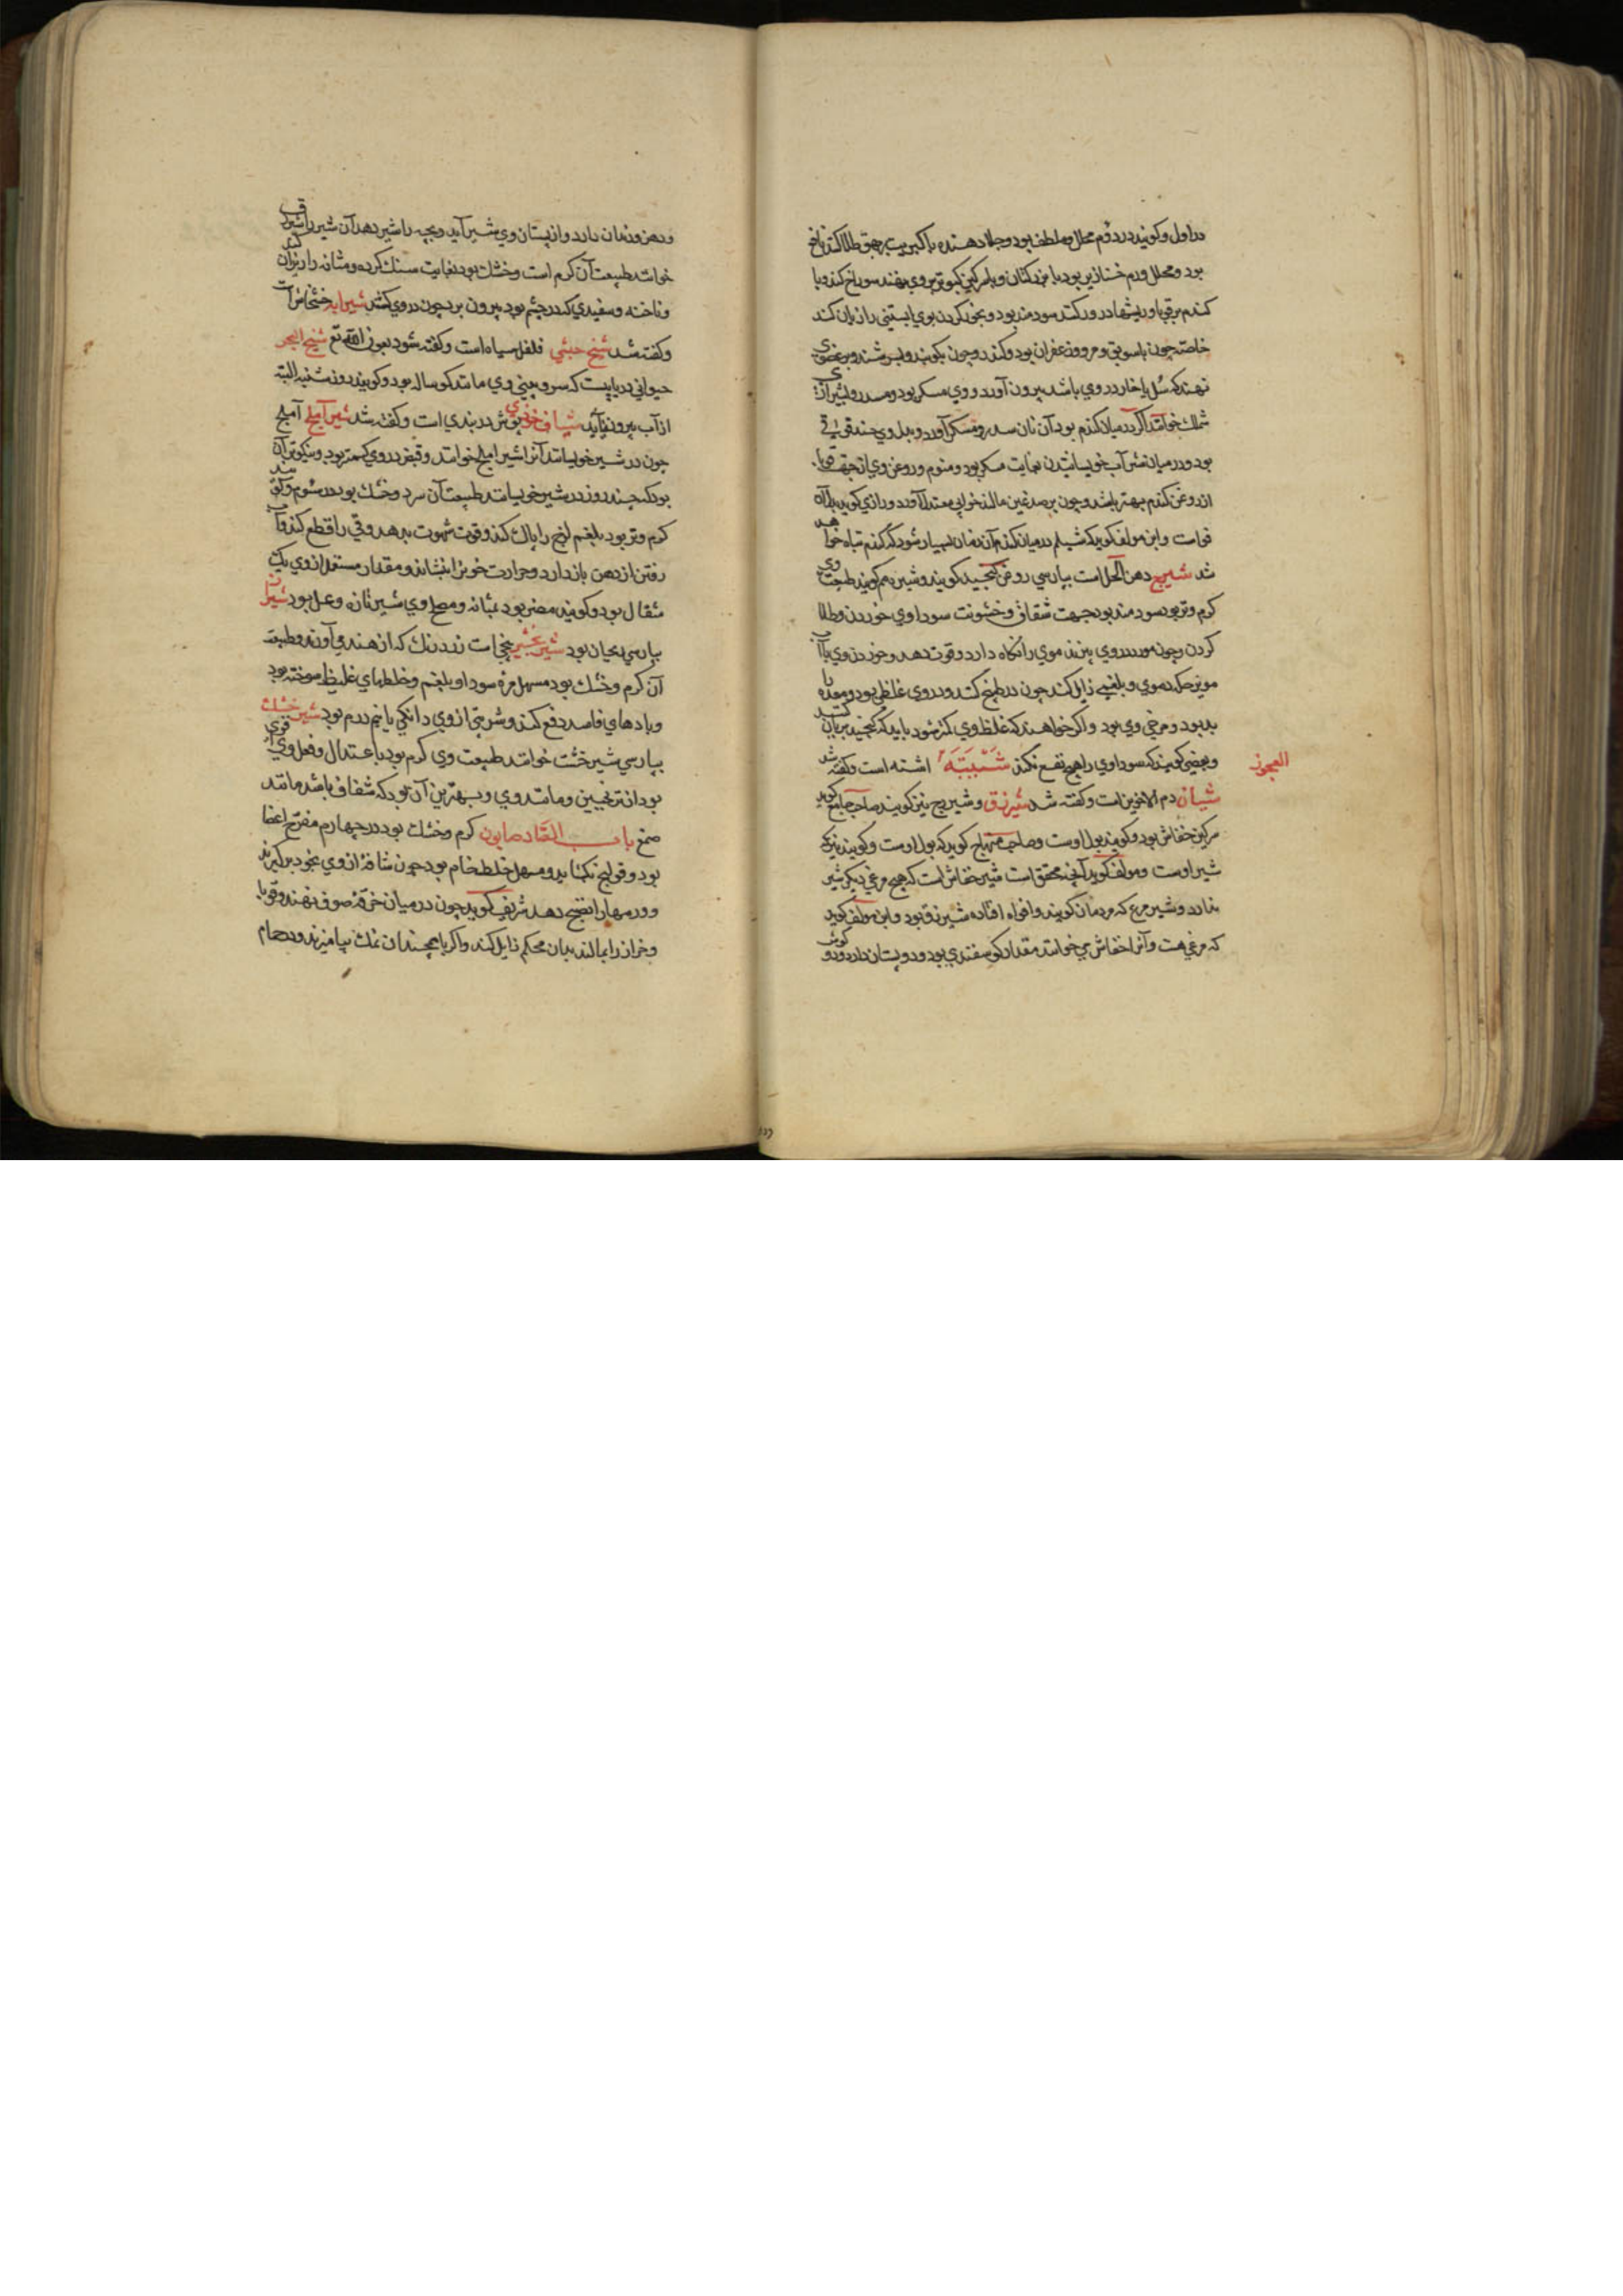 در اول و کویند در دوم محلل و ملطف بود و جلا دهنده با کبریت بر بهق طلا کنند نافع
بود و محلل ورم خنازیر بود با بزر کتان و با سرکین کبوتر بر وی نهند سوراخ کند و با
کندم برقوبا و ریشها در ور کنند سودمند بود و بخور کردن بوی ابستنی را زیان کند
خاصه چون با سویق و مر و زعفران بود و کندر و چون بکوبند و بسرشند و بر عضوی
نهند که سل یا خار در وی باشد بیرون آورد و وی مسکر بود و مسدر و بشیراز
شلمک خوانند اکر در میان کندم بود آن نان سدر و مسکر آورد و بدل وی
بود و در میان شراب خویسانیدن بغایت مسکر بود و منوم و روغن وی از جهت قوبا
از روغن کندم بهتر باشد و چون بر صدغین مالند خوابی معتدل آورد و رازی کوید بدل آن
نوات و ابن مولف کوید که شیلم در میان کندم آن زمان بسیار شود که کندم تباه خواهد
شد شیرج دهن الحل است بپارسی روغن کنجید کویند و شیره هم کویند طبیعت وی
کرم و تر بود سودمند بود جهت شقاق و خشونت سوداوی خوردن و طلا
کردن و چون مورد در وی بپزند موی را نکاه دارد و قوت دهد و خوردن وی با آب
مویز حکه دموی و بلغمی زایل کند چون در طبخ کنند و در وی غلظی بود و معده را
بد بود و مرخی وی بود و اکر خواهند که غلظ وی کمتر شود باید که کنجید بریان کنند
و بعضی کویند که سوداوی را هیچ نفع نکند شیبه اشنه است و کفته شد
العجوز
شیان دم الاخوین است و کفته شد شیرزق و شیرزج نیز کویند صاحب جامع کوید
سرکین خفاش بود و کویند بول اوست و صاحب منهاج کوید که بول اوست و کویند نیز که
شیر اوست و مولف کوید آنچه محقق است شیر خفاش است که هیچ مرغی دیکر شیر
ندارد و شیر مرغ که مردمان کویند و افواه افتاده شیرزق بود و ابن مولف کوید
که مرغی هست و آنرا خفاش بری خوانند مقدار کوسفندی بود و دو پستان دارد و دو کوش
و دهن و دندان دارد و از پستان وی شیر آید و بچه را شیر دهد آن شیر را شیرزق
خوانند طبیعت آن کرم است و خشک بود بغایت سنک کرده و مثانه را بریزاند
و ناخنه و سفیدی که در چشم بود بیرون برد چون در وی کشند شیرابه خشخاش است
و کفته شد شیخ حبشی فلفل سیاه است و کفته شود بعون الله تع شیخ البحر
حیوانی دریاییست که سر و بینی وی مانند کوساله بود و کویند روز شنبه البته
از آب بیرون نیاید شیاف خوزی بوش دربندی است و کفته شد شیر آملج آملج
چون در شیر خویسانند آنرا شیر املج خوانند و قبض در وی کمتر بود و نیکوتر آن
بود که چند روز در شیر خویسانند طبیعت آن سرد و خشک بود در سوم و کویند
کرم و تر بود بلغم لزج را پاک کند و قوت شهوت بدهد و قی را قطع کند و آب
رفتن از دهن باز دارد و حرارت خون را بنشاند و مقدار مستعمل از وی یک
مثقال بود و کویند مضر بود بمثانه و مصلح وی شیر تازه و عسل بود شیران
بپارسی بحیان بود شیر بخشیر بیخی است زردرنک که از هند می آورند و طبیعت
آن کرم و خشک بود مسهل مره سودا و بلغم و خلطهای غلیظ سوخته بود
و بادهای فاسد دفع کند و شربتی از وی دانکی یا نیم درم بود شیرخشک
بپارسی شیرخشت خوانند طبیعت وی کرم بود باعتدال و فعل وی قوی تر
بود از ترنجبین و مانند وی و بهترین آن بود که شفاف باشد مانند
صمغ باب الصاد صابون کرم و خشک بود در چهارم مقرح اعضا
بود و قولنج بکشاید و مسهل خلط خام بود چون شافه از وی بخود برکیرند
و ورمها را نضج دهد شریف کوید چون در میان خرقه صوف نهند و قوبا
و حزاز را بمالند بدان محکم زایل کند و اکر با همچندان نمک بیامیزند و در حمام